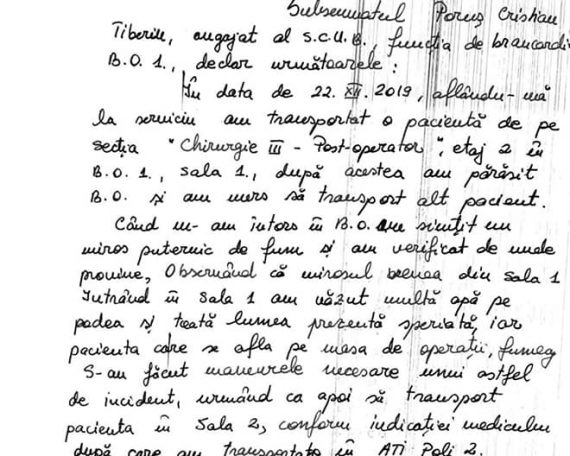 Subsemnatul Poruș Cristian
Tiberiu, angajat al S.C.U.B., funcția de brancardi
B.O. 1., declar următoarele:
În data de 22.XII.2019, aflându-mă
la serviciu am transportat o pacientă de pe
secția "Chirurgie III - Post-operator", etaj 2 în
B.O. 1., sala 1., după acestea am părăsit
B.O. și am mers să transport alt pacient.
Când m-am întors în B.O. am simțit un
miros puternic de fum și am verificat de unde
provine, Observând că mirosul venea din sala 1
Intrând în sala 1 am văzut multă apă pe
podea și toată lumea prezentă speriată, iar
pacienta care se afla pe masa de operații, fumeg
S-au făcut manevrele necesare unui astfel
de incident, urmând ca apoi să transport
pacienta în Sala 2, conform indicației medicului
după care am transportat-o în ATI Poli 2.